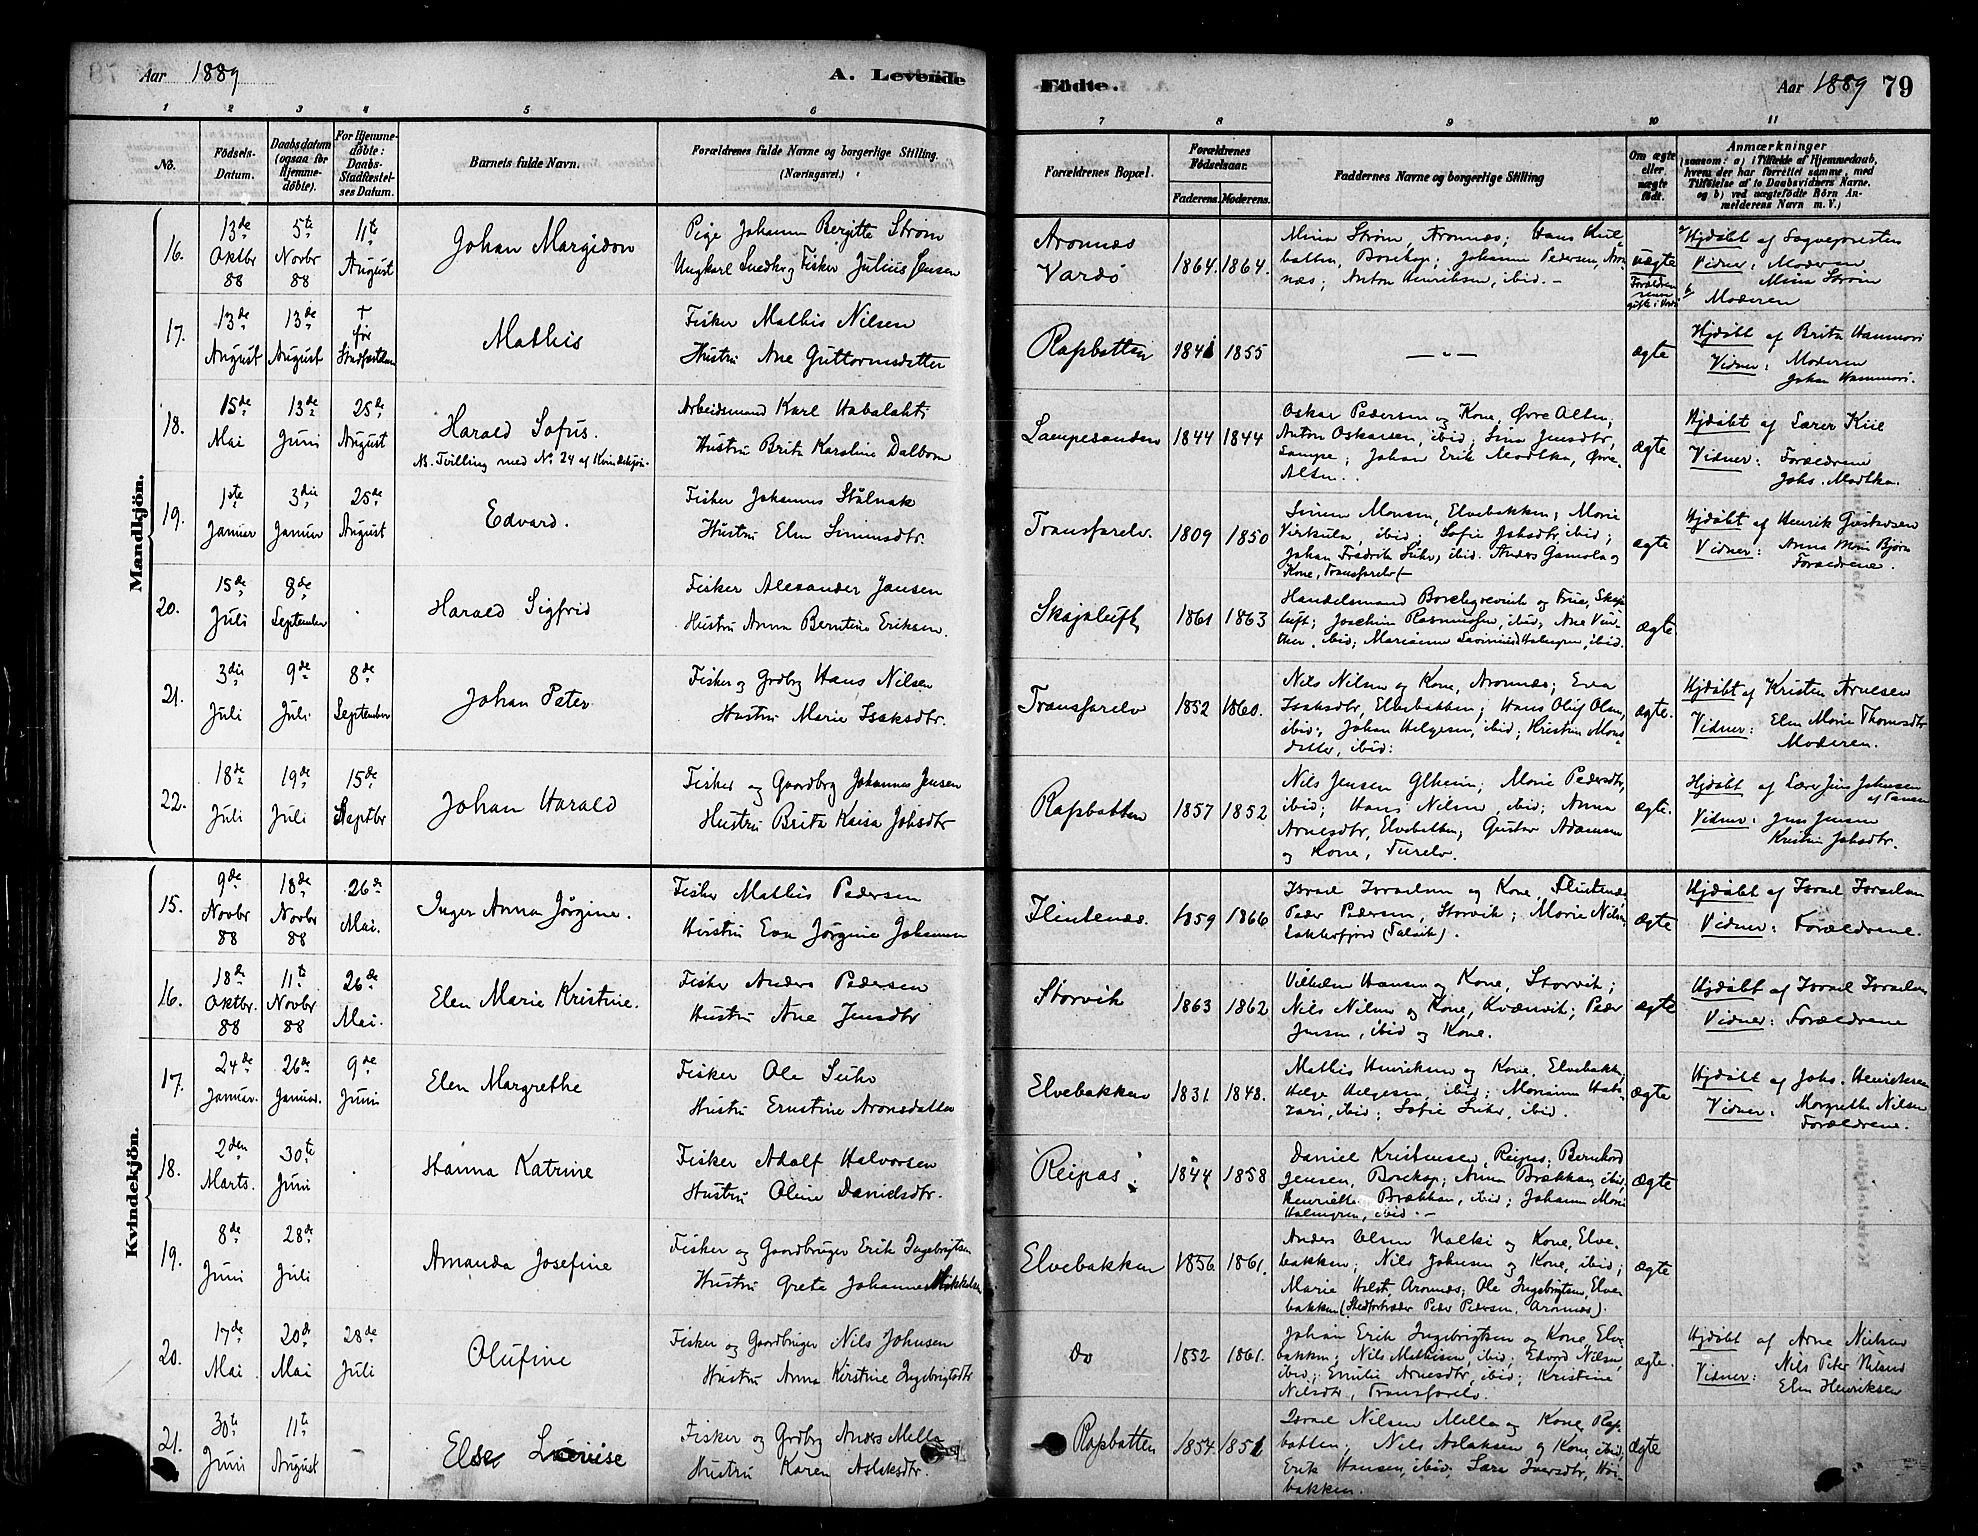 Aar 1889
A. Levende
Födte.
Aar 1889 79
1 2 3 4 5 6 7 8 9 10 11
No.
Födsels-Datum.
Daabsdatum (ogsaa for Hjemmedöbte).
For Hjemmedöbte: Daabs-Stadfæstelses Datum.
Barnets fulde Navn.
Forældrenes fulde Navne og borgerlige Stilling. (Næringsvei.)
Forældrenes Bopæl.
Forældrenes Födselsaar.
Faderens. Moderens.
Faddernes Navne og borgerlige Stilling
Om ægte eller uægte födt.
Anmærkninger
(saasom: a) i Tilfælde af Hjemmedaab,
hvem der har forrettet samme, med
Tilföielse af to Daabsvidners Navne.
og b) ved uægtefödte Börn Anmelderens Navn m. V.)
Mandkjön.
16. 13de Oktbr 88 5te Novbr 88 11te August
Johan Margidon
Pige Johanna Bergitte Strøm
Ungkarl Snedker og Fisker Julius Jensen
Aronnæs
Vardö
1864. 1864.
Mina Strøm, Aronnæs; Hans
batten, Bosekop; Johanne Pedersen, Aronnæs; Anton Henriksen, ibid. –
uægte
a/ Hjdöbt af Sognepresten
Vidner: Moderen
Mina Strøm
b/ Moderen
17. 13de August 13de August † før Stadfæstelsen
Mathis
Fisker Mathis Nilsen
Hustru Ane Guttormsdatter
Rapbatten
1841 1855
— „ —
ægte
Hjdöbt af Brita Hammari
Vidner: Moderen
Johan Hammari.
18. 15de Mai 13de Juni 25de August
Harald Sofus.
NB. Tvilling med No. 24 af Kvindekjön.
Arbeidsmand Karl Habalahti
Hustru Brita Karoline Dalbom
Lampesanden
1844 1844
Oskar Pedersen og Kone, Øvre Alten;
Anton Oskarsen, ibid; Lina Jensdtr,
Lampe; Johan Erik Modtka, Øvre-
Alten.
ægte
Hjdöbt af Lærer Kiil
Vidner: Forældrene
Johs. Modtka.
19. 1ste Januar 3die Januar 25de August
Edvard.
Fisker Johannes Stålnak
Hustru Elen Simensdtr.
Transfarelv.
1809 1850
Simen Monsen, Elvebakken; Marie
Virkula, ibid; Sofie Johsdtr, ibid;
Johan Fredrik Suhr, ibid. Anders Gamola og
Kone, Transfarelv –
ægte
Hjdöbt af Henrik Gustavsen
Vidner: Anna Marie Bjørn
Forældrene.
20. 15de Juli 8de September
Harald Sigfrid
Fisker Alexander Jansen
Hustru Anna Berntine Eriksen.
Skajaluft
1861 1863
Handelsmand Borchgrevink og Frue, Skaja
luft; Joachim Rasmussen, ibid; Ane
ibid; Marianne Holmgren, ibid.
ægte
21. 3die Juli 9de Juli 8de September
Johan Peter
Fisker og Grdbr Hans Nilsen
Hustru Marie Isaksdtr.
Transfarelv
1852 1860.
Nils Nilsen og Kone, Aronnæs; Eva
Isaksdtr, Elvebakken; Hans Oluf Olsen,
ibid; Johan Helgesen, ibid; Kristine Mons
datter, ibid:
ægte.
Hjdöbt af Kristen Arnesen
Vidner: Elen Marie Thomasdtr
Moderen.
22. 18de Juli 19de Juli 15de Septbr
Johan Harald
Fisker og Gaardbr Johannes Jensen
Hustru Brita Kaisa Johsdtr
Rapbatten
1857 1852
Nils Jensen Elheim; Marie Pedersdtr,
ibid; Hans Nilsen, ibid; Anna
Arnesdtr, Elvebakken; Gustav Adamsen
og Kone, Turelv.
ægte.
Hjdöbt af Lærer Jens Johnsen
Vidner: Jens Jensen
Kristine Johsdtr.
Kvindekjön.
15. 9de Novbr 88 18de Novbr 88 26de Mai.
Inger Anna Jörgine.
Fisker Mathis Pedersen
Hustru Eva Jörgine Johannesen
Flintenæs.
1859 1866
Israel Israelsen og Kone, Flintenæs
Peder Pedersen, Storvik; Marie Nilsen
Lakkerfjord (Talvik).
ægte
Hjdöbt af Israel Israelsen
Vidner: Forældrene.
16. 18de Oktbr. 88 11te Novbr 88 26de Mai.
Elen Marie Kristine.
Fisker Anders Pedersen
Hustru Ane Jensdtr
Storvik
1863 1862
Vilhelm Hansen og Kone, Storvik;
Nils Nilsen og Kone, Kvænvik; Peder
Jensen, ibid og Kone.
ægte
Hjdöbt af Israel Israelsen
Vidner: Forældrene
17. 24de Januar. 26de Januar. 9de Juni
Elen Margrethe
Fisker Ole Suhr
Hustru Ernstine Aronsdatter
Elvebakken
1831. 1848.
Mathis Henriksen og Kone, Elvebakken;
Helge Helgesen, ibid; Marianne
ibid; Sofie Suhr, ibid.
ægte
Hjdöbt af Johs. Henriksen
Vidner: Margrethe Nilsen
Forældrene.
18. 2den Marts. 30te Juni
Hanna Katrine
Fisker Adolf Halvorsen
Hustru Oline Danielsdtr.
Reipas
1844 1858
Daniel Kristensen, Reipas; Bernhard
Jensen, Bosekop; Anna Brækkan, ibid;
Henriette Brækkan, ibid; Johanne Marie
Holmgren, ibid. –
ægte
19. 8de Juni 28de Juli
Amanda Josefine
Fisker og Gaardbruger Erik Ingebrigtsen
Hustru Grete Johannes Mikkelsen
Elvebakken
1856 1861.
Anders Olsen Halki og Kone, Elve-
bakken; Nils Johnsen og Kone, ibid;
Marie Holst, Aronnæs; Ole Ingebrigtsen, Elve
bakken (Stedfortræder Peder Pedersen, Aronnæs).
ægte
20. 17de Mai. 20de Mai 28de Juli
Olufine
Fisker og Gaardbruger Nils Johnsen
Hustru Anna Kirstine Ingebrigtsdtr
do
1852 1861.
Johan Erik Ingebrigtsen og Kone, Elve
bakken; Nils Mathisen, ibid; Edvard Nilsen,
ibid; Emilie Arnesdtr, ibid; Kristine
Nilsdtr, Transfarelv.
ægte.
Hjdöbt af Arne Nielsen
Vidner: Nils Peter
Elen Henriksen
21. 30te Juni 11te August
Else Lovise
Fisker og Grdbr Anders Mella
Hustru Karen Aslaksdtr.
Rapbatten
1854. 1851
Israel Nilsen Mella og Kone, Rap-
batten; Nils Aslaksen og Kone, ibid;
Erik Hansen, ibid; Sara Iversdtr,
bakken.
ægte